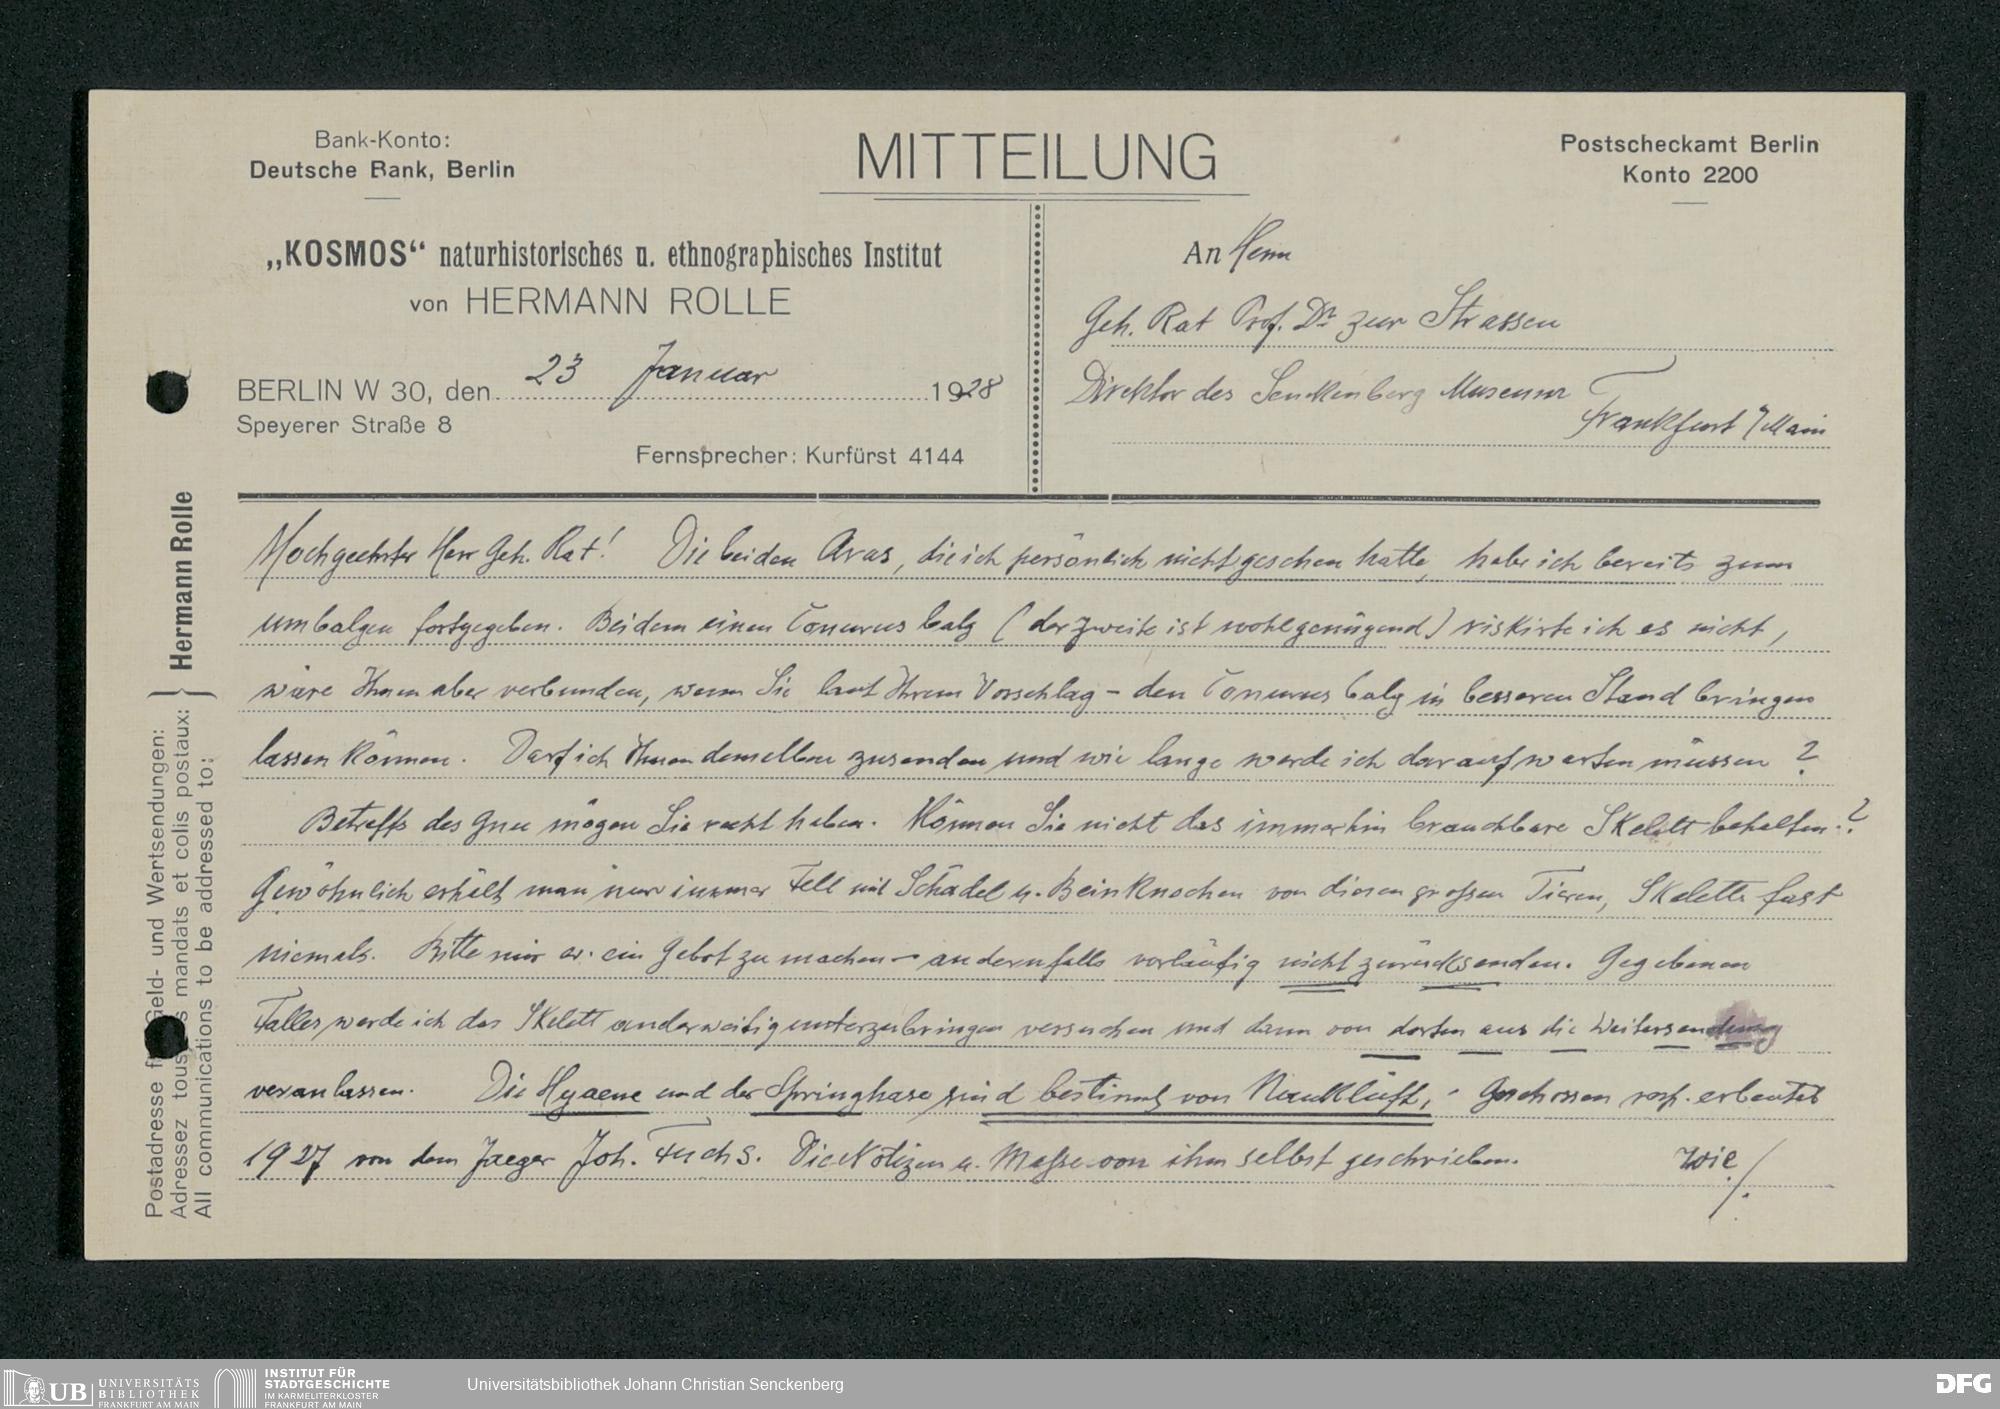 Bank-Konto:
Deutsche Bank, Berlin
MITTEILUNG
Postscheckamt Berlin
Konto 2200
„KOSMOS“ naturhistorisches u. ethnographisches Institut
von HERMANN ROLLE
BERLIN W 30, den 23 Januar 1928
Speyerer Straße 8
Fernsprecher: Kurfürst 4144
An Herrn
Geh. Rat Prof. Dr zur Strassen
Direktor des Senckenberg Museums
Frankfurt /Main
Postadresse für Geld- und Wertsendungen:
Adressez tous les mandats et colis postaux:
All communications to be addressed to:
} Hermann Rolle
Hochgeehrter Herr Geh. Rat! Die beiden Aras, die ich persönlich nicht gesehen hatte, habe ich bereits zum
umbalgen fortgegeben. Bei dem einen Conurus balg (der zweite ist wohl genügend) riskirte ich es nicht,
wäre Ihnen aber verbunden, wenn Sie laut Ihrem Vorschlag – den Conurus balg in besseren Stand bringen
lassen können. Darf ich Ihnen denselben zusenden und wie lange werde ich darauf warten müssen ?
Betreffs des Gnu mögen Sie recht haben. Können Sie nicht das immerhin brauchbare Skelett behalten?
Gewöhnlich erhält man nur immer Fell mit Schädel u. Beinknochen von diesen grossen Tieren, Skelette fast
niemals. Bitte mir ev. ein Gebot zu machen – andernfalls vorläufig nicht zurücksenden. Gegebenen
Falles werde ich das Skelett anderweitig unterzubringen versuchen und dann von dorten aus die Weitersendung
veranlassen. Die Hyaene und der Springhase sind bestimmt von Naukluft, Geschossen resp. erbeutet
1927 von dem Jaeger Joh. Fuchs. Die Notizen u. Masse von ihm selbst geschrieben. Wie /.
UB UNIVERSITÄTS
BIBLIOTHEK
FRANKFURT AM MAIN
INSTITUT FÜR
STADTGESCHICHTE
IM KARMELITERKLOSTER
FRANKFURT AM MAIN
Universitätsbibliothek Johann Christian Senckenberg
DFG